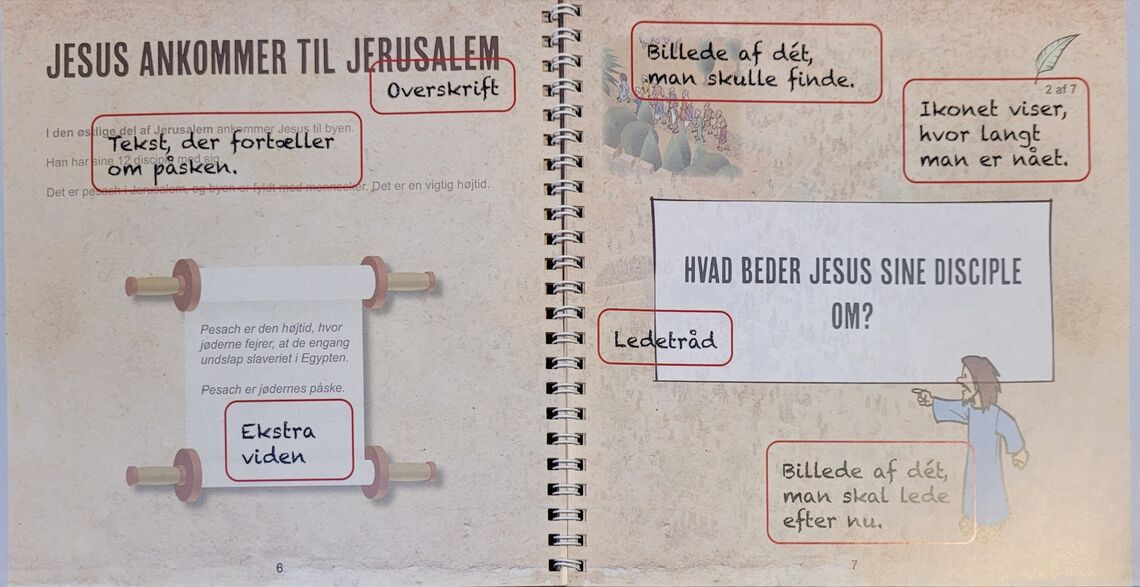 JESUS ANKOMMER TIL JERUSALEM
Overskrift
I den østlige del af Jerusalem ankommer Jesus til byen.
Tekst, der fortæller
om påsken.
Han har sine 12 disciple med sig.
Det er pesach i Jerusalem, og byen er fyldt med mennesker. Det er en vigtig højtid.
Pesach er den højtid, hvor
jøderne fejrer, at de engang
undslap slaveriet i Egypten.
Pesach er jødernes påske.
Ekstra
viden
6
Billede af dét,
man skulle finde.
2 af 7
Ikonet viser,
hvor langt
man er nået.
HVAD BEDER JESUS SINE DISCIPLE
OM?
Ledetråd
Billede af dét,
man skal lede
efter nu.
7